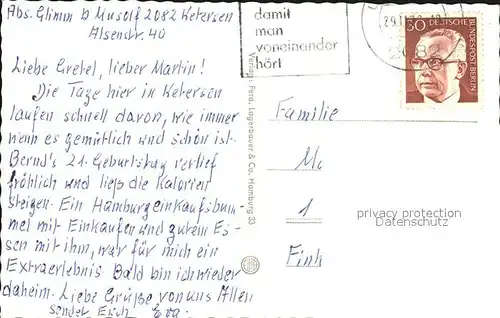 Abs. Glimm b Musolf 2082 Uetersen
Alsenstr. 40
Liebe Gretel, lieber Martin!
Die Tage hier in Uetersen
laufen schnell davon, wie immer
wenn es gemütlich und schön ist.
Bernd's 21. Geburtstag verlief
fröhlich und ließ die Kalorien
steigen. Ein Hamburgeinkaufsbum-
mel mit Einkaufen und gutem Es-
sen mit ihm, war für mich ein
Extraerlebnis Bald bin ich wieder
daheim. Liebe Grüße von uns Allen
sendet Euch Eva.
Verlag Ferd. Lagerbauer & Co., Hamburg 33
damit
man
voneinander
hört
30 DEUTSCHE
BUNDESPOST BERLIN
Familie
Mo
1
Fink
privacy protection
Datenschutz